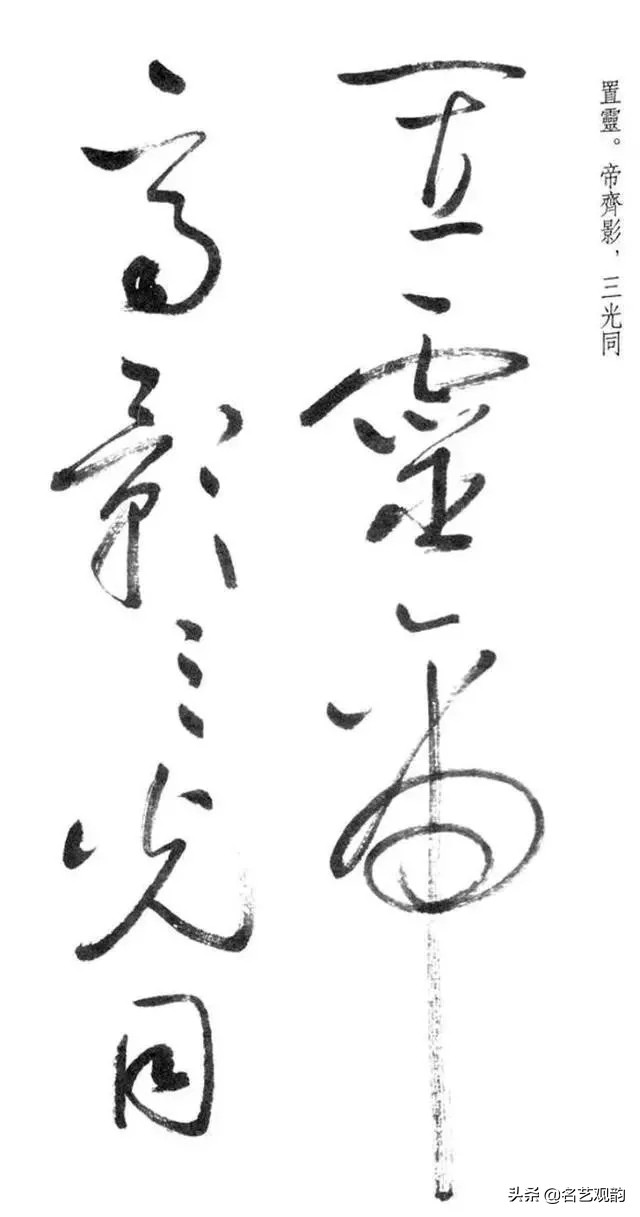 置靈。帝齊影，三光同
置靈帝
齊影三光同
头条 @名艺观韵